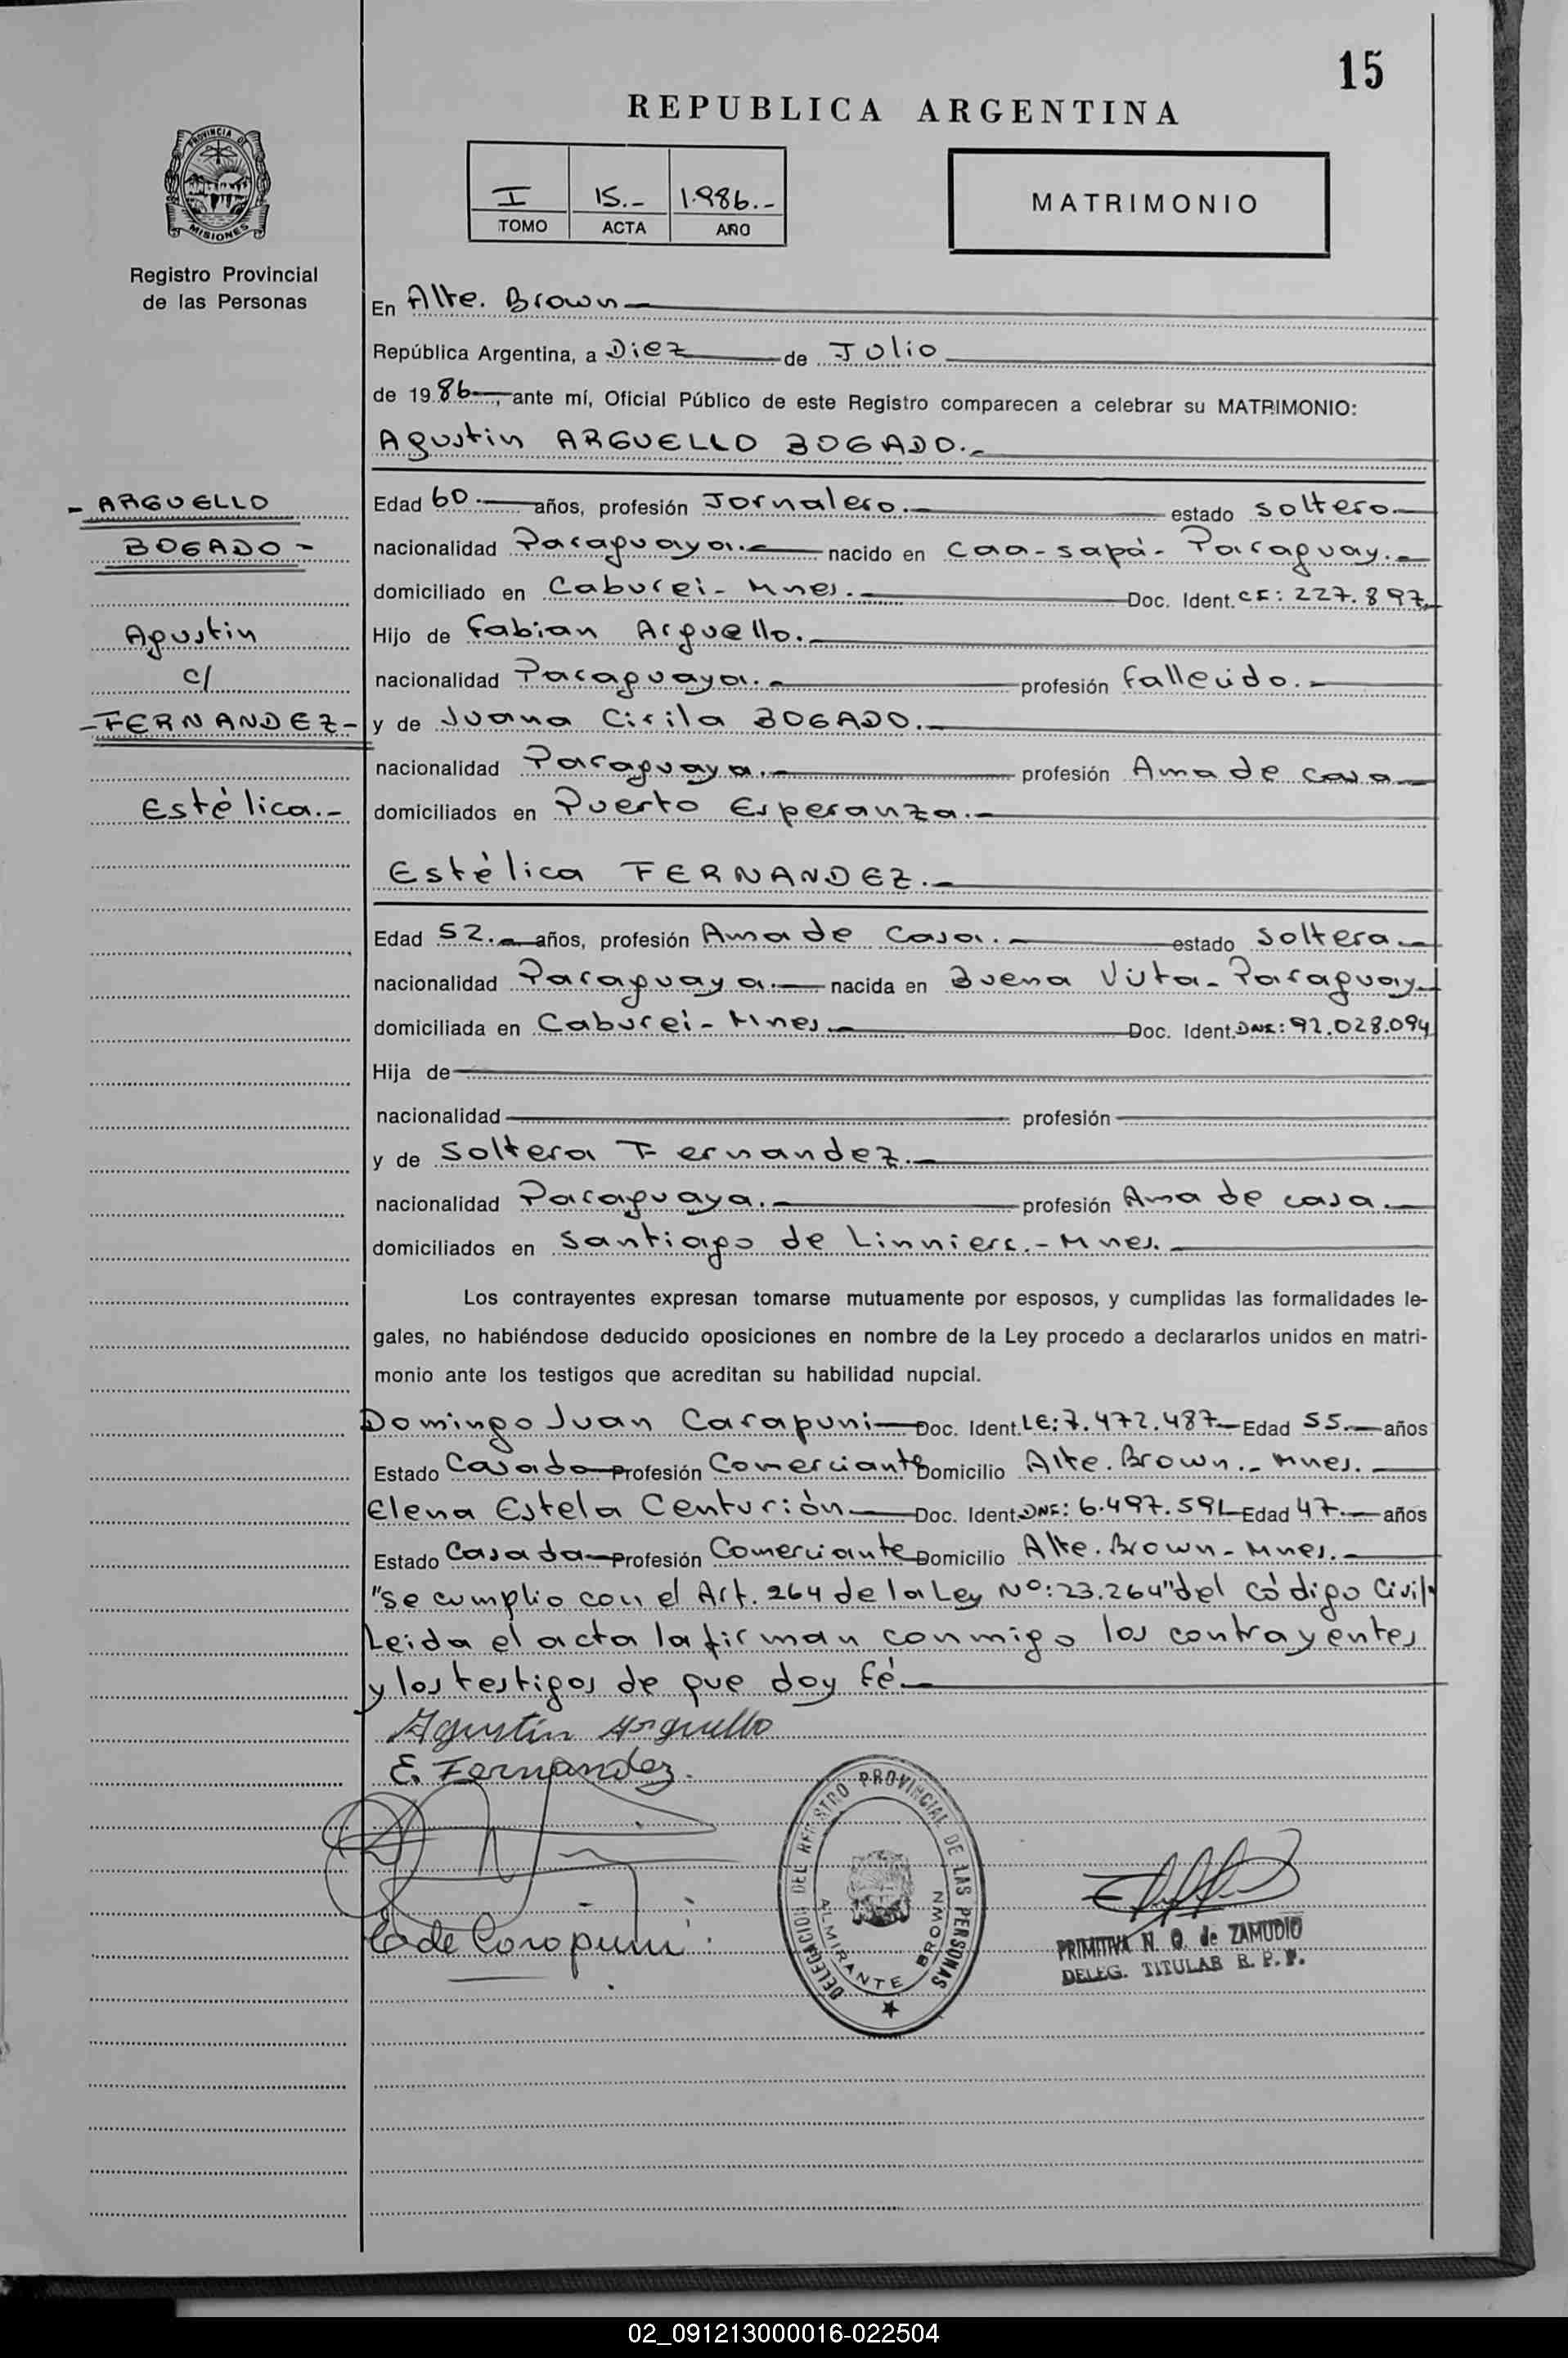 15
REPUBLICA ARGENTINA
PROVINCIA DE
MISIONES
Registro Provincial
de las Personas
I 15.- 1.986.-
TOMO ACTA AÑO
MATRIMONIO
En Alte. Brown
República Argentina, a Diez de Julio
de 1986, ante mí, Oficial Público de este Registro comparecen a celebrar su MATRIMONIO:
Agustin ARGUELLO BOGADO.-
- ARGUELLO
BOGADO -
Agustin
c/
- FERNANDEZ -
Estélica.-
Edad 60.- años, profesión Jornalero.- estado soltero.-
nacionalidad Paraguaya.- nacido en Caa-sapá- Paraguay.-
domiciliado en Caburei- Mnes.- Doc. Ident. CF: 227.897.
Hijo de Fabian Arguello.-
nacionalidad Paraguaya.- profesión fallecido.-
y de Juana Cirila BOGADO.-
nacionalidad Paraguaya.- profesión Ama de casa
domiciliados en Puerto Esperanza.-
Estélica FERNANDEZ.-
Edad 52.- años, profesión Ama de Casa.- estado soltera.-
nacionalidad Paraguaya.- nacida en Buena Vista- Paraguay-
domiciliada en Caburei- Mnes.- Doc. Ident. DNI: 92.028.094
Hija de
nacionalidad profesión
y de Soltera Fernandez.-
nacionalidad Paraguaya.- profesión Ama de casa.-
domiciliados en Santiago de Linniers.- Mnes.-
Los contrayentes expresan tomarse mutuamente por esposos, y cumplidas las formalidades le-
gales, no habiéndose deducido oposiciones en nombre de la Ley procedo a declararlos unidos en matri-
monio ante los testigos que acreditan su habilidad nupcial.
Domingo Juan Carapuni Doc. Ident. LE: 7.472.487 Edad 55.- años
Estado Casado Profesión Comerciante Domicilio Alte. Brown.- Mnes.-
Elena Estela Centurión Doc. Ident. DNI: 6.497.591 Edad 47.- años
Estado Casada Profesión Comerciante Domicilio Alte. Brown- Mnes.-
"Se cumplio con el Art. 264 de la Ley Nº: 23.264" del código Civil.
Leida el acta la firman conmigo los contrayentes
y los testigos de que doy fé.-
Agustin Arguello
E. Fernandez.
E de Carapuni
DELEGACION DEL REGISTRO PROVINCIAL DE LAS PERSONAS
ALMIRANTE BROWN
PRIMITIVA N. Q. de ZAMUDIO
DELEG. TITULAR R. P. P.
02_091213000016-022504